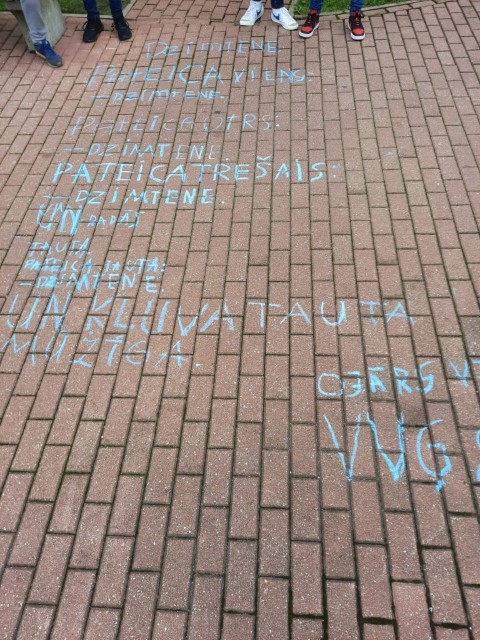 DZIMTENE
PATEICA VIENS:
- DZIMTENE.
PATEICA OTRS:
- DZIMTENE.
PATEICA TREŠAIS:
- DZIMTENE.
UN RADĀS
TAUTA.
PATEICA TAUTA:
- DZIMTENE.
UN KĻUVA TAUTA
MŪŽĪGA.
OJĀRS V
VVĢ